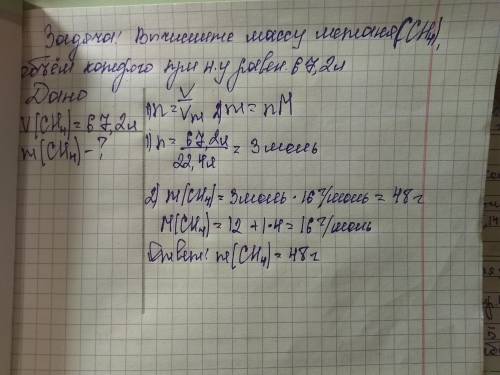 Задача: Вычислите массу метана (CH4),
объём которого при н.у равен 67,2л
Дано
V(CH4)=67,2л
m(CH4)-?
1) n = V/Vm 2) m = nM
1) n = 67,2л/22,4л = 3 моль
2) m(CH4) = 3моль · 16 г/моль = 48 г
M(CH4) = 12 + 1·4 = 16 г/моль
Ответ: m(CH4) = 48 г